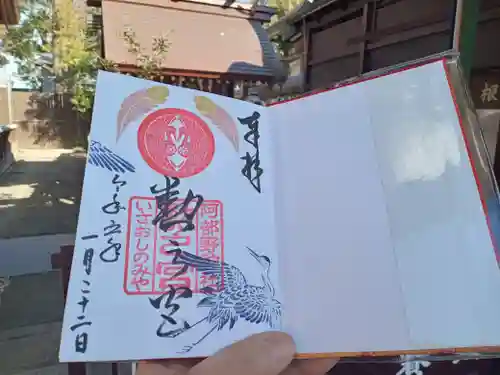 奉拝
勲之宮
阿部野神社
いさおしのみや
令和五年
一月二十二日
根